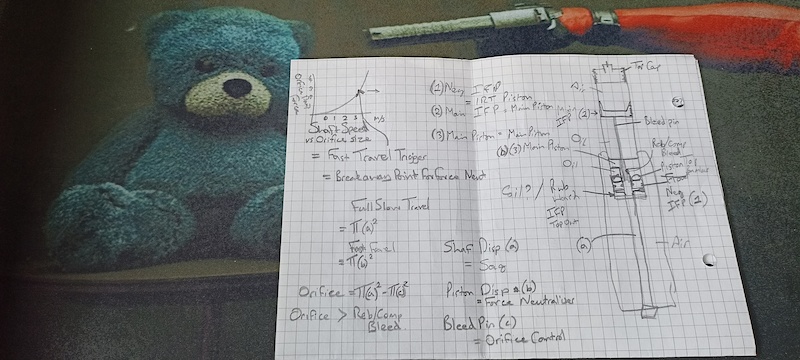 Orifice
Force
0 1 2 3 M/s
Shaft Speed
vs Orifice size
= Fast Travel Trigger
= Breakaway Point For Force
Full Slow Travel
= π(a)²
Fast Travel
= π(b)²
Orifice = π(a)² - π(c)²
Orifice > Reb/Comp
Bleed.
(1) Neg IFP
= IRT Piston
(2) Main IFP = Main Piston
(3) Main Piston = Main Piston
(b)(3) Main Piston
Oil
Shaf Disp (a)
= Sag
Piston Disp (b)
= Force Neutraliser
Bleed Pin (c)
= Orifice Control
Top Cap
Air
IFP (2)
Bleed pin
Oil
Reb/Comp
Bleed
Piston
Neg
IFP (1)
IFP
Top Out
(a)
Air